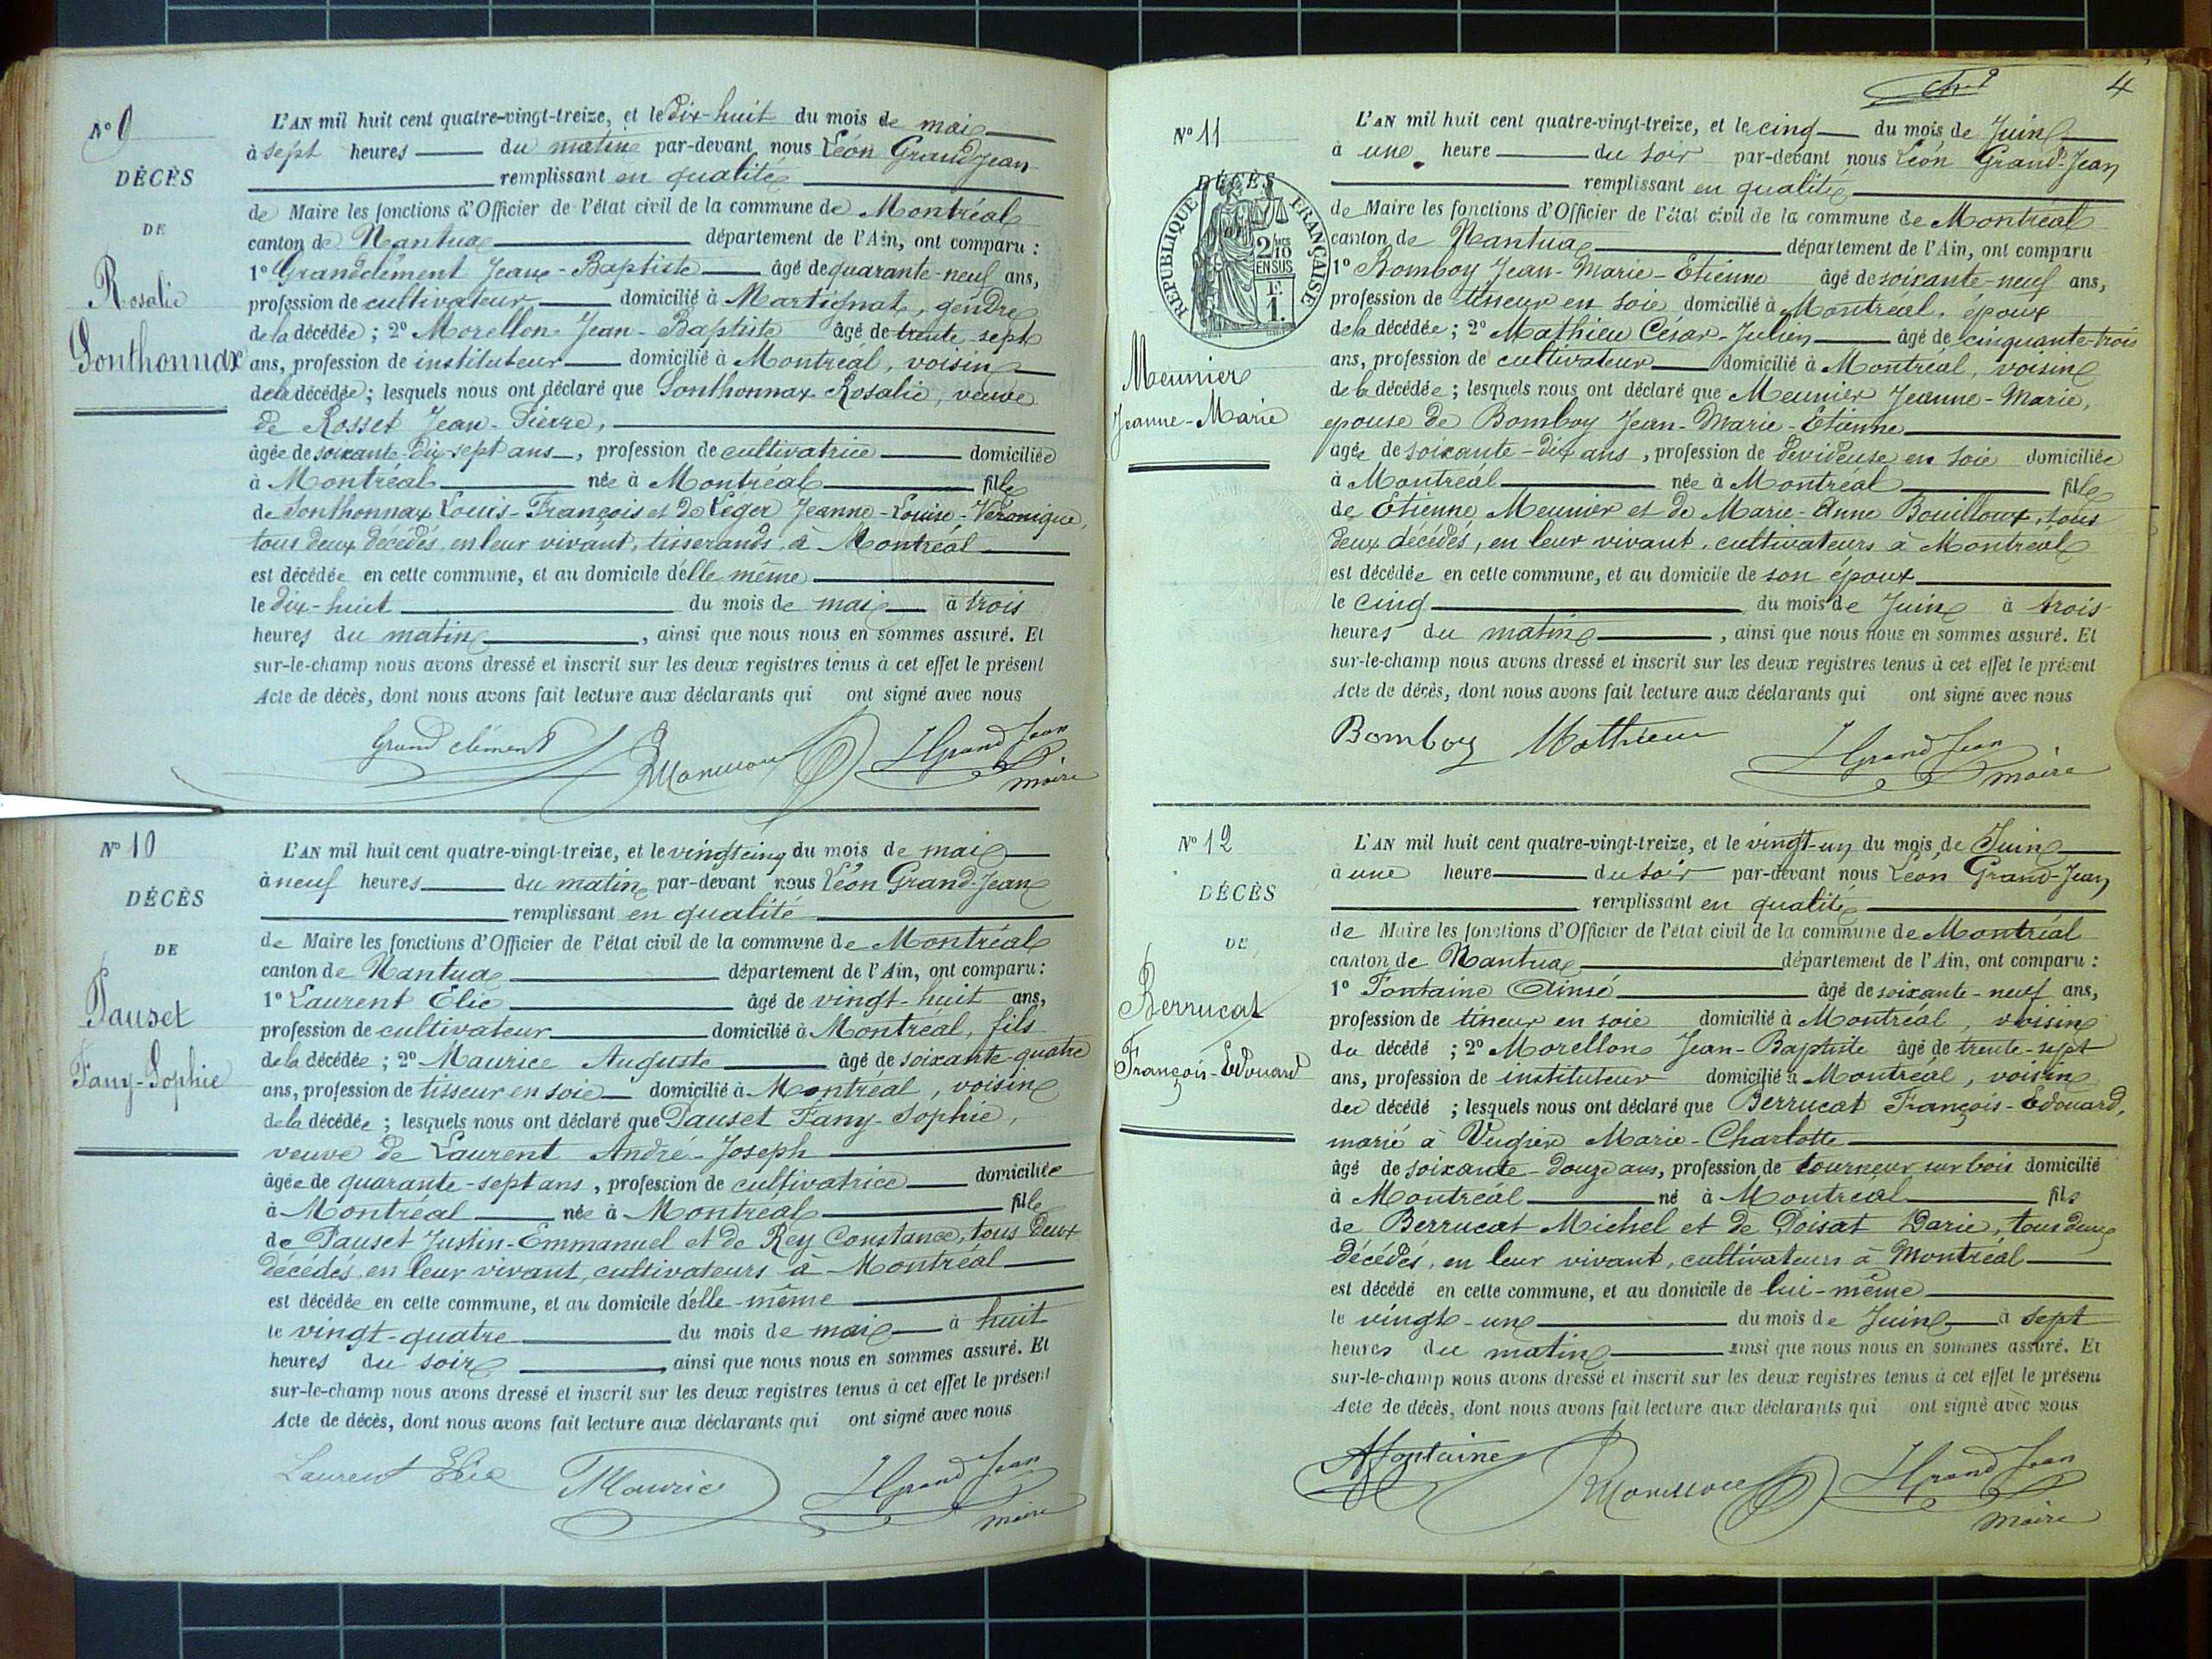 N° 9
DÉCÈS
DE
Rosalie
Sonthonnax
L'AN mil huit cent quatre-vingt-treize, et le dix-huit du mois de mai
à sept heures du matin par-devant nous Léon Grand-Jean
remplissant en qualité
de Maire les fonctions d'Officier de l'état civil de la commune de Montréal
canton de Nantua département de l'Ain, ont comparu :
1° Grandclément Jean-Baptiste âgé de quarante-neuf ans,
profession de cultivateur domicilié à Martignat, gendre
de la décédée ; 2° Morellon Jean-Baptiste âgé de trente-sept
ans, profession de instituteur domicilié à Montréal, voisin
de la décédée ; lesquels nous ont déclaré que Sonthonnax Rosalie, veuve
de Rosset Jean-Pierre,
âgée de soixante-dix-sept ans, profession de cultivatrice domiciliée
à Montréal née à Montréal fille
de Sonthonnax Louis-François et de Léger Jeanne-Louise-Véronique,
tous deux décédés, en leur vivant, tisserands à Montréal
est décédée en cette commune, et au domicile d'elle même
le dix-huit du mois de mai à trois
heures du matin, ainsi que nous nous en sommes assuré. Et
sur-le-champ nous avons dressé et inscrit sur les deux registres tenus à cet effet le présent
Acte de décès, dont nous avons fait lecture aux déclarants qui ont signé avec nous
Grand clément Morellon LGrand Jean
maire
N° 10
DÉCÈS
DE
Pauset
Fany-Sophie
L'AN mil huit cent quatre-vingt-treize, et le vingt cinq du mois de mai
à neuf heures du matin par-devant nous Léon Grand-Jean
remplissant en qualité
de Maire les fonctions d'Officier de l'état civil de la commune de Montréal
canton de Nantua département de l'Ain, ont comparu :
1° Laurent Elie âgé de vingt-huit ans,
profession de cultivateur domicilié à Montréal, fils
de la décédée ; 2° Maurice Auguste âgé de soixante-quatre
ans, profession de tisseur en soie domicilié à Montréal, voisin
de la décédée ; lesquels nous ont déclaré que Pauset Fany-Sophie,
veuve de Laurent André-Joseph
âgée de quarante-sept ans, profession de cultivatrice domiciliée
à Montréal née à Montréal fille
de Pauset Justin-Emmanuel et de Rey Constance, tous deux
décédés en leur vivant, cultivateurs à Montréal
est décédée en cette commune, et au domicile d'elle-même
le vingt-quatre du mois de mai à huit
heures du soir, ainsi que nous nous en sommes assuré. Et
sur-le-champ nous avons dressé et inscrit sur les deux registres tenus à cet effet le présent
Acte de décès, dont nous avons fait lecture aux déclarants qui ont signé avec nous
Laurent Elie Maurice LGrand Jean
maire
4
N° 11
DÉCÈS
RÉPUBLIQUE FRANÇAISE
2 MES
10
EN SUS
1 F.
Meunier
Jeanne-Marie
L'AN mil huit cent quatre-vingt-treize, et le cinq du mois de Juin
à une heure du soir par-devant nous Léon Grand-Jean
remplissant en qualité
de Maire les fonctions d'Officier de l'état civil de la commune de Montréal
canton de Nantua département de l'Ain, ont comparu
1° Bomboy Jean-Marie-Etienne âgé de soixante-neuf ans,
profession de tisseur en soie domicilié à Montréal, époux
de la décédée ; 2° Mathieu César-Julien âgé de cinquante-trois
ans, profession de cultivateur domicilié à Montréal, voisin
de la décédée ; lesquels nous ont déclaré que Meunier Jeanne-Marie,
epouse de Bomboy Jean-Marie-Etienne
âgée de soixante-dix ans, profession de devideuse en soie domiciliée
à Montréal née à Montréal fille
de Etienne Meunier et de Marie-Anne Bouilloux, tous
deux décédés, en leur vivant, cultivateurs à Montréal
est décédée en cette commune, et au domicile de son époux
le cinq du mois de Juin à trois
heures du matin, ainsi que nous nous en sommes assuré. Et
sur-le-champ nous avons dressé et inscrit sur les deux registres tenus à cet effet le présent
Acte de décès, dont nous avons fait lecture aux déclarants qui ont signé avec nous
Bomboy Mathieu LGrand Jean
maire
N° 12
DÉCÈS
DE
Berrucat
François-Edouard
L'AN mil huit cent quatre-vingt-treize, et le vingt-un du mois de Juin
à une heure du soir par-devant nous Léon Grand-Jean
remplissant en qualité
de Maire les fonctions d'Officier de l'état civil de la commune de Montréal
canton de Nantua département de l'Ain, ont comparu :
1° Fontaine Aimé âgé de soixante-neuf ans,
profession de tisseur en soie domicilié à Montréal, voisin
du décédé ; 2° Morellon Jean-Baptiste âgé de trente-sept
ans, profession de instituteur domicilié à Montréal, voisin
du décédé ; lesquels nous ont déclaré que Berrucat François-Edouard,
marié à Vugier Marie-Charlotte
âgé de soixante-douze ans, profession de tourneur sur bois domicilié
à Montréal né à Montréal fils
de Berrucat Michel et de Poisat Darie, tous deux
décédés, en leur vivant, cultivateurs à Montréal
est décédé en cette commune, et au domicile de lui-même
le vingt-un du mois de Juin à sept
heures du matin ainsi que nous nous en sommes assuré. Et
sur-le-champ nous avons dressé et inscrit sur les deux registres tenus à cet effet le présent
Acte de décès, dont nous avons fait lecture aux déclarants qui ont signé avec nous
AFontaine Morellon LGrand Jean
maire